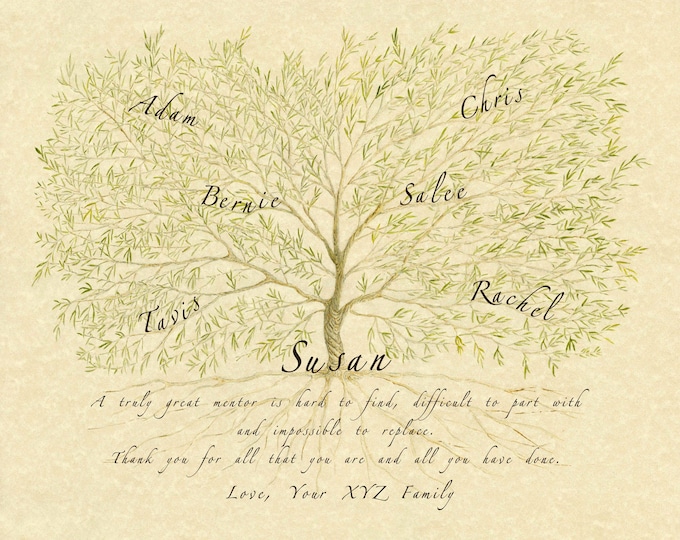 Adam
Chris
Bernie
Salee
Tavis
Rachel
Susan
A truly great mentor is hard to find, difficult to part with
and impossible to replace.
Thank you for all that you are and all you have done.
Love, Your XYZ Family